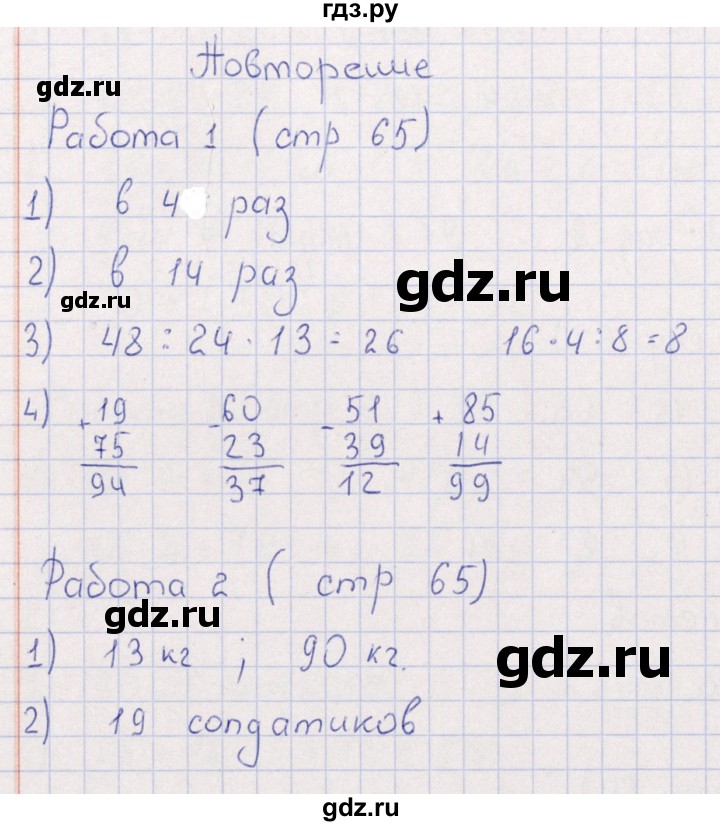 гдз.ру
Повторение
gdz.ru
Работа 1 (стр 65)
1) в 4 раз
2) в 14 раз
gdz.ru
gdz.ru
3) 48 : 24 · 13 = 26 16 · 4 : 8 = 8
4) + 19 - 60 - 51 + 85
75 23 39 14
94 37 12 99
Работа 2 ( стр 65)
gdz.ru
1) 13 кг ; 90 кг.
gdz.ru
2) 19 солдатиков
gdz.ru